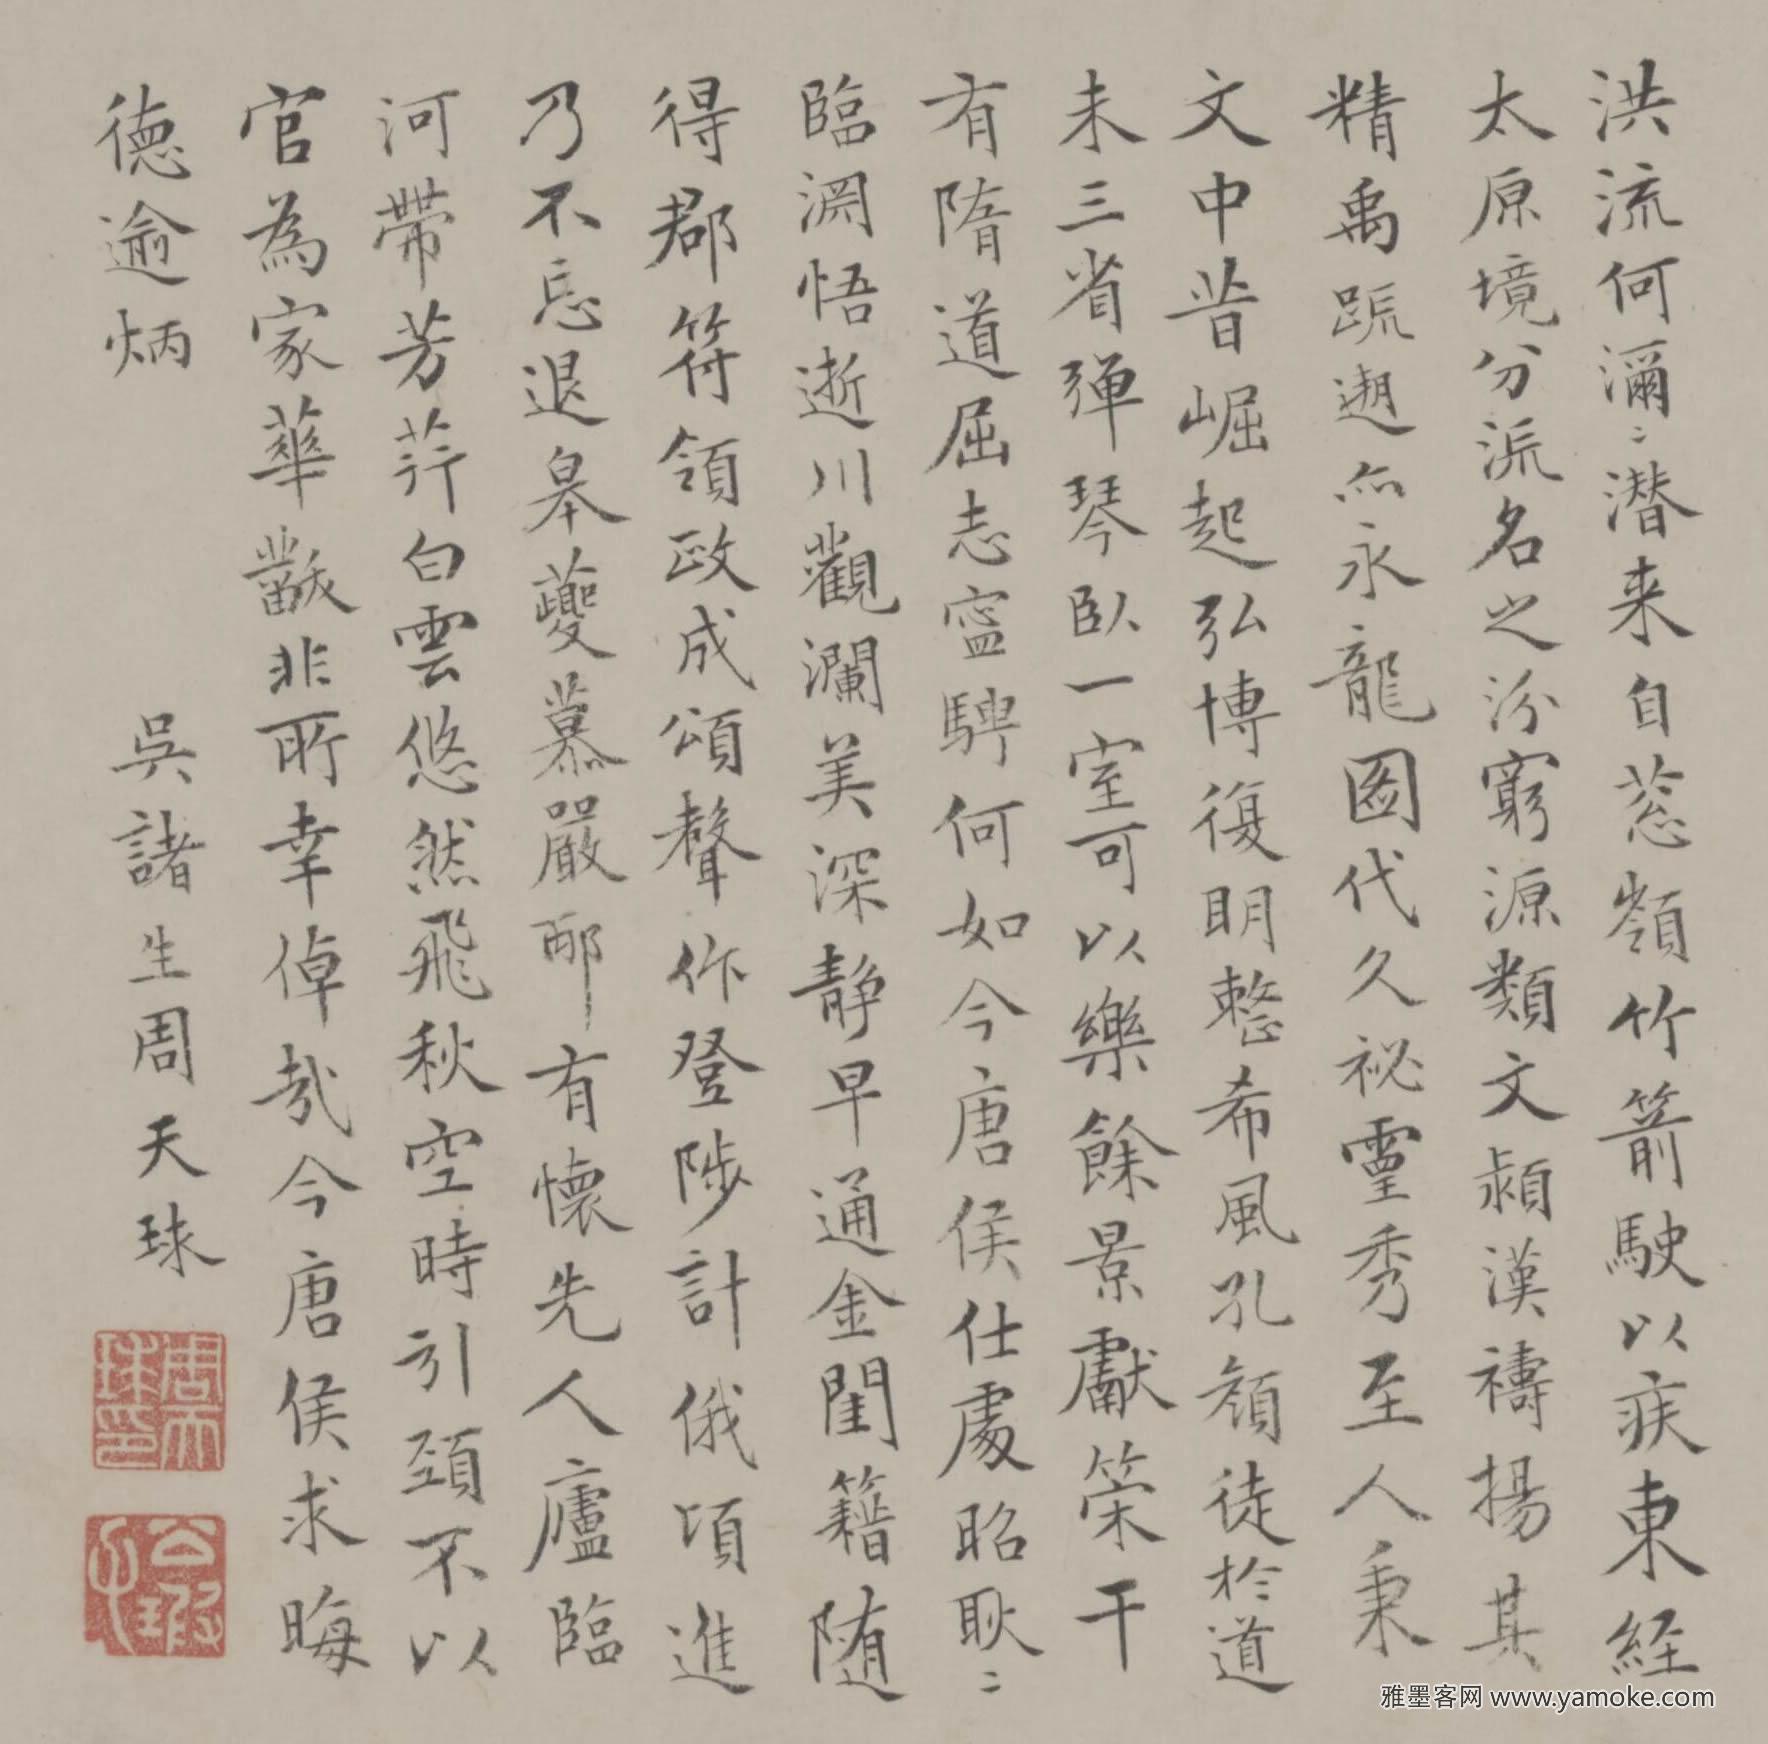 洪流何瀰〻潜来自葱嶺竹箭駛以疾東経
太原境分派名之汾窮源類文潁漢禱揚其
精禹䟽遡亦永龍圖代久祕靈秀至人秉
文中昔崛起弘博復明整希風孔顏徒於道
未三省弹琴臥一室可以樂餘景獻策干
有隋道屈志寧騁何如今唐侯仕處昭耿〻
臨淵悟逝川觀瀾美深静早通金閨籍随
得郡符領政成頌聲作登陟計俄頃進
乃不忘退皋夔慕嚴邴有懷先人廬臨
河帶芳荇白雲悠然飛秋空時引頸不以
官為家華簪非所幸倬哉今唐侯求晦
德逾炳
吳諸生周天球
周天球印
公瑕
雅墨客网 www.yamoke.com